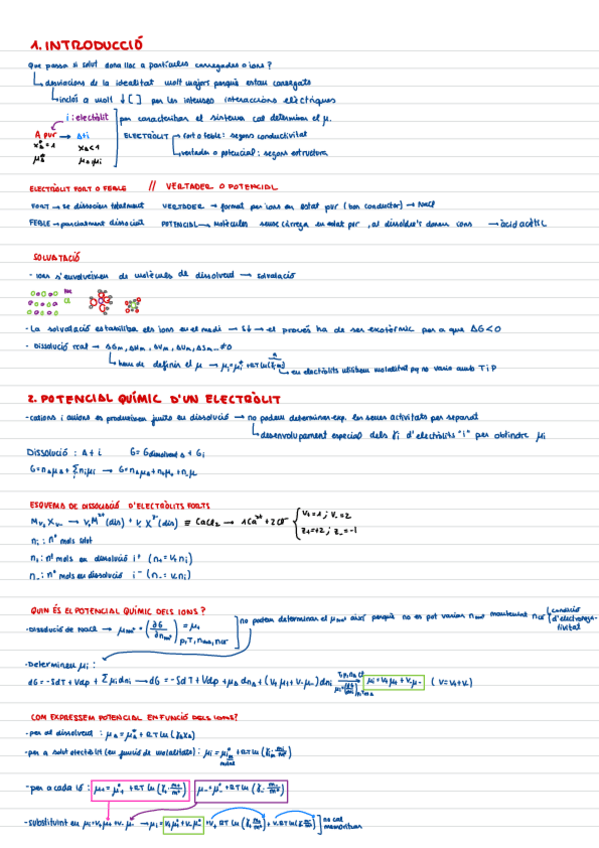 1. INTRODUCCIÓ
Que passa si solut dona lloc a partícules carregades o ions?
↳ desviacions de la idealitat molt majors perquè estan carregats
↳ inclòs a molt ↓[ ] per les intenses interaccions elèctriques
i: electròlit per caracteritzar el sistema cal determinar el μ.
A pur → A+i ELECTRÒLIT → fort o feble: segons conductivitat
x*A = 1 xA < 1 ↳ vertader o potencial: segons estructura
μ*A μA, μi
ELECTRÒLIT FORT O FEBLE // VERTADER O POTENCIAL
FORT → se dissocien totalment VERTADER → format per ions en estat pur (bon conductor) → NaCl
FEBLE → parcialment dissociat POTENCIAL → molècules sense càrrega en estat pur, al dissoldre's donen ions → àcid acètic
SOLVATACIÓ
- Ions s'envolveixen de molècules de dissolvent → solvatació
- La solvatació estabilitza els ions en el medi → Sí → el procés ha de ser exotèrmic per a que ΔG<0
- Dissolució real →
↳ hem de definir el μ →
↳ en electròlits utilitzem molalitat pq no varia amb T i P
2. POTENCIAL QUÍMIC D'UN ELECTRÒLIT
- cations i anions es produeixen junts en dissolució → no podem determinar exp. les seues activitats per separat
↳ desenvolupament especial dels γi d'electròlits "i" per obtindre μi
Dissolució : A + i G = Gdissolvent A + Gi
G = nAμA + Σniμi → G = nAμA + n+μ+ + n-μ-
ESQUEMA DE DISSOCIACIÓ D'ELECTRÒLITS FORTS
Mν+Xν- → ν+M^z+(dis) + ν-X^z-(dis) ≡ CaCl2 → 1Ca²⁺ + 2Cl⁻ { ν+ = 1 ; ν- = 2
z+ = +2 ; z- = -1
ni : nº mols solut
n+ : nº mols en dissolució i⁺ (n+ = ν+ni)
n- : nº mols en dissolució i⁻ (n- = ν-ni)
QUIN ÉS EL POTENCIAL QUÍMIC DELS IONS ?
- Dissolució de NaCl → μNa⁺ = (∂G/∂nNa⁺) = μ+ no podem determinar el μNa⁺ així perquè no es pot variar nNa⁺ mantenint nCl⁻ (condició d'electroneutralitat
- Determinem μi :
dG = -SdT + Vdp + Σμidni → dG = -SdT + Vdp + μAdnA + (ν+μ+ + ν-μ-)dni → μi = ν+μ+ + ν-μ- (ν = ν+ + ν-)
COM EXPRESSEM POTENCIAL EN FUNCIÓ DELS IONS?
- per al dissolvent : μA = μ*A + RT ln(γAxA)
- per a solut electròlit (en funció de molalitat) : μi = μ°i,m + RT ln(γi mi/m°)
- per a cada ió : μ+ = μ°+ + RT ln(γ+· m+/m°) μ- = μ°- + RT ln(γ-· m-/m°)
- substituint en μi = ν+μ+ + ν-μ- → μi = ν+μ°+ + ν-μ°- + ν+RT ln(γ+ m+/m°) + ν-RT ln(γ- m-/m°) ] no cal memoritzar